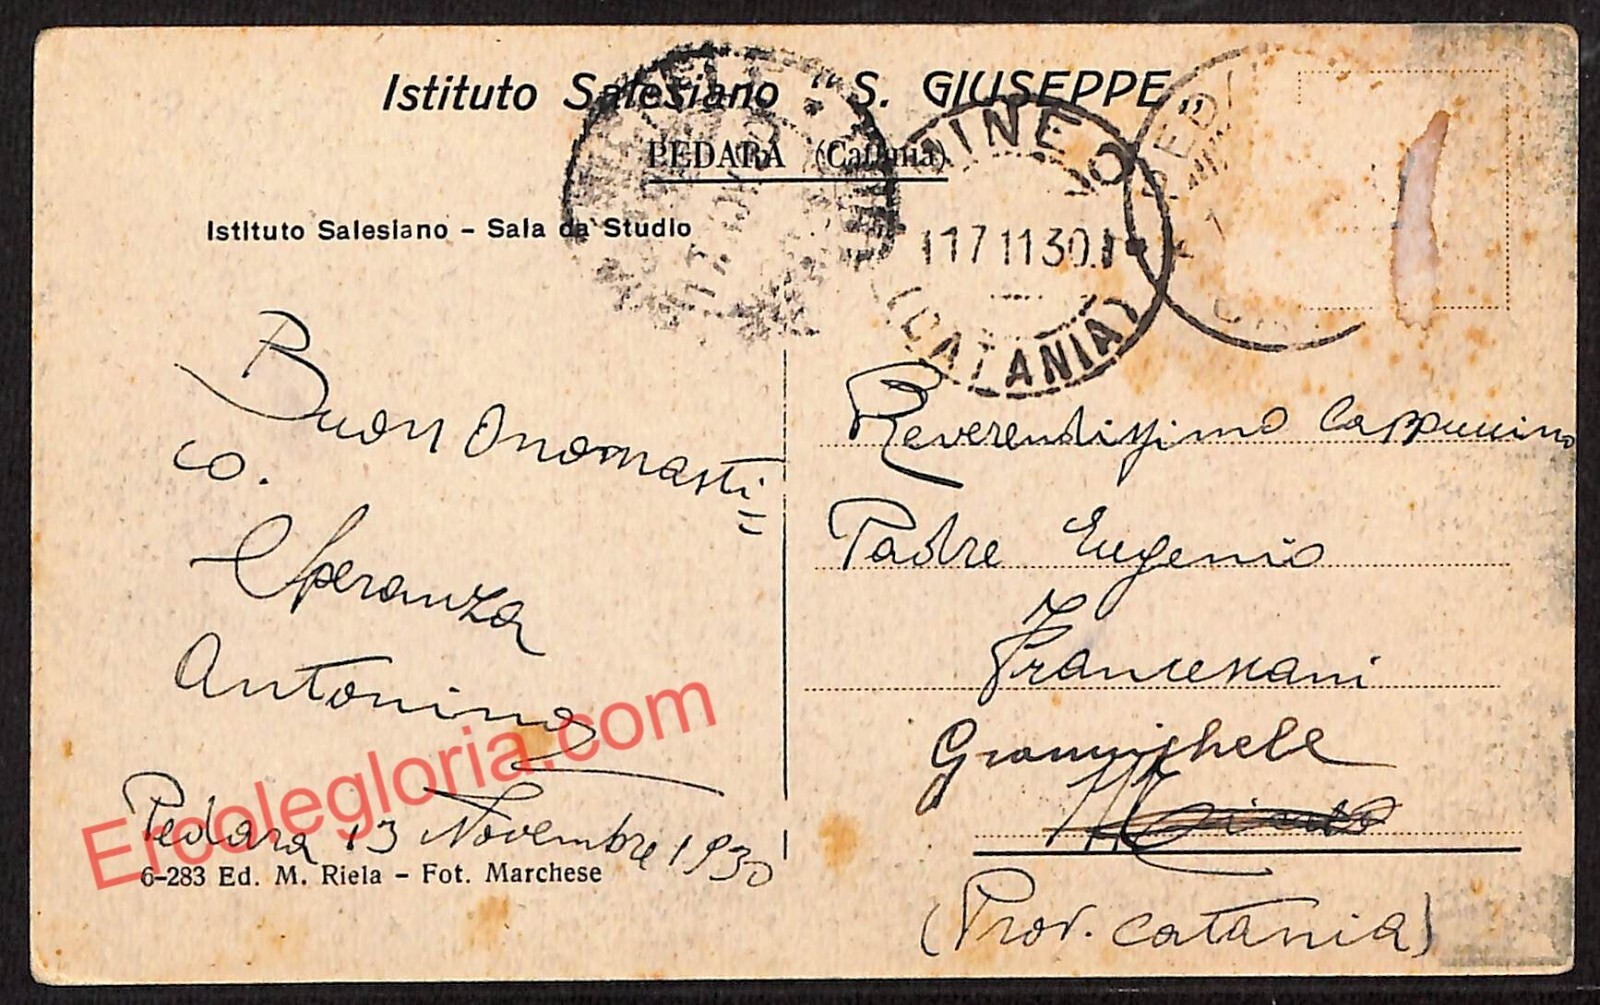 Istituto Salesiano "S. GIUSEPPE"
PEDARA (Catania)
Istituto Salesiano – Sala da Studio
MINEO
17 11 30
(CATANIA)
PEDARA
Buon Onomasti=
co.
Speranza
Antonino
Pedara 13 Novembre 1930
6-283 Ed. M. Riela – Fot. Marchese
Reverendissimo Cappuccino
Padre Eugenio
Francescani
Grammichele
Mineo
(Prov. Catania)
Ercolegloria.com